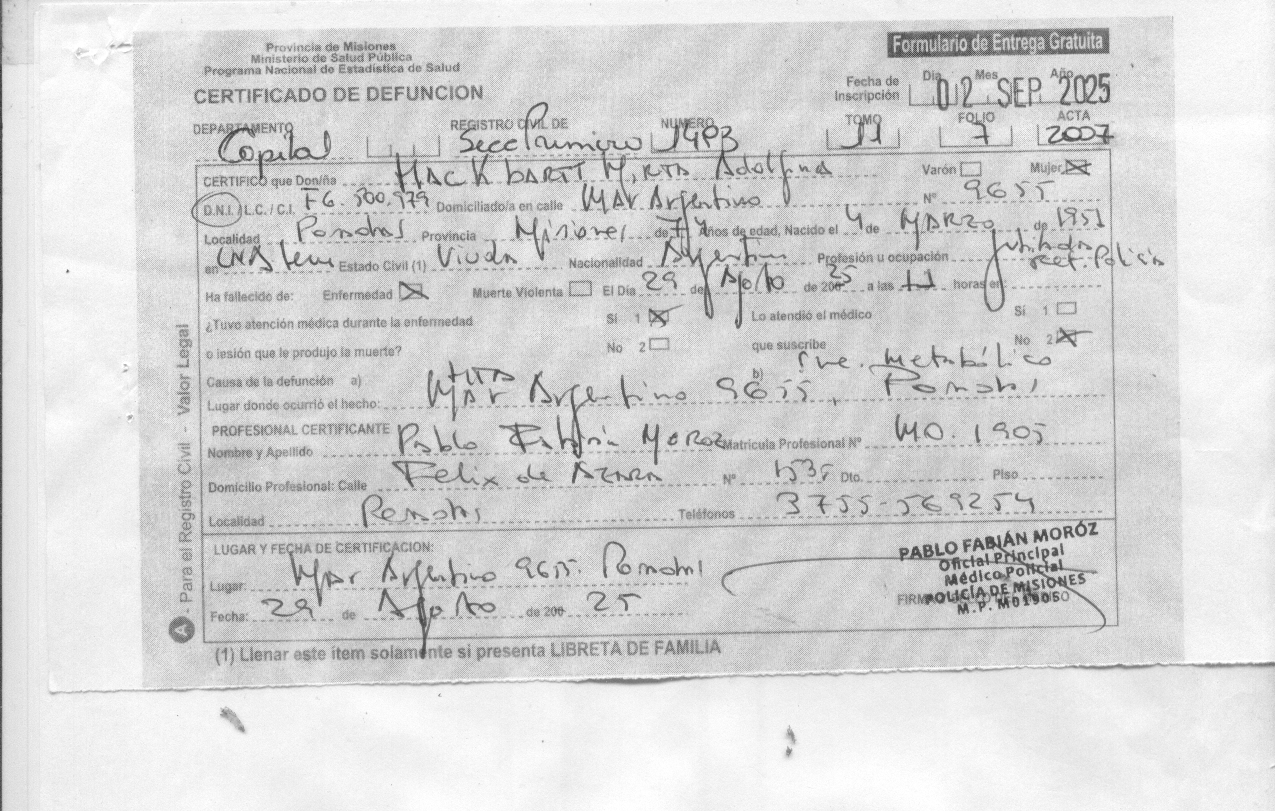 Provincia de Misiones
Ministerio de Salud Pública
Programa Nacional de Estadística de Salud
Formulario de Entrega Gratuita
CERTIFICADO DE DEFUNCION
Fecha de Inscripción Dia Mes Año 02 SEP. 2025
DEPARTAMENTO REGISTRO CIVIL DE NUMERO TOMO FOLIO ACTA
Capital Secc 11 7 2007
CERTIFICO que Don/ña HACKBARTT MIRTA Adolfina Varón Mujer
D.N.I. / L.C. / C.I. F6.500.979 Domiciliado/a en calle MAR Argentino Nº 9655
Localidad Posadas Provincia Misiones de 74 Años de edad, Nacido el 4 de MARZO de 1951
en Estado Civil (1) Viuda Nacionalidad Argentina Profesión u ocupación Jubilada ret. Policia
Ha fallecido de: Enfermedad Muerte Violenta El Dia 29 de Agosto de 200 25 a las 11 horas en
¿Tuvo atención médica durante la enfermedad Si 1 Lo atendió el médico Si 1
o lesión que le produjo la muerte? No 2 que suscribe No 2
Causa de la defunción a) HTA b) Metabólico
Lugar donde ocurrió el hecho: MAR Argentino 9655, Posadas
PROFESIONAL CERTIFICANTE
Nombre y Apellido Pablo Fabián MOROZ Matricula Profesional Nº MO.1905
Domicilio Profesional: Calle Felix de AZARA Nº Dto. Piso
Localidad Posadas Teléfonos 3755-569254
LUGAR Y FECHA DE CERTIFICACION:
Lugar: MAR Argentino 9655. Posadas
Fecha: 29 de Agosto de 200 25
PABLO FABIÁN MORÓZ
Oficial Principal
Médico Policial
POLICÍA DE MISIONES
M.P. M01905
(1) Llenar este item solamente si presenta LIBRETA DE FAMILIA
A - Para el Registro Civil - Valor Legal